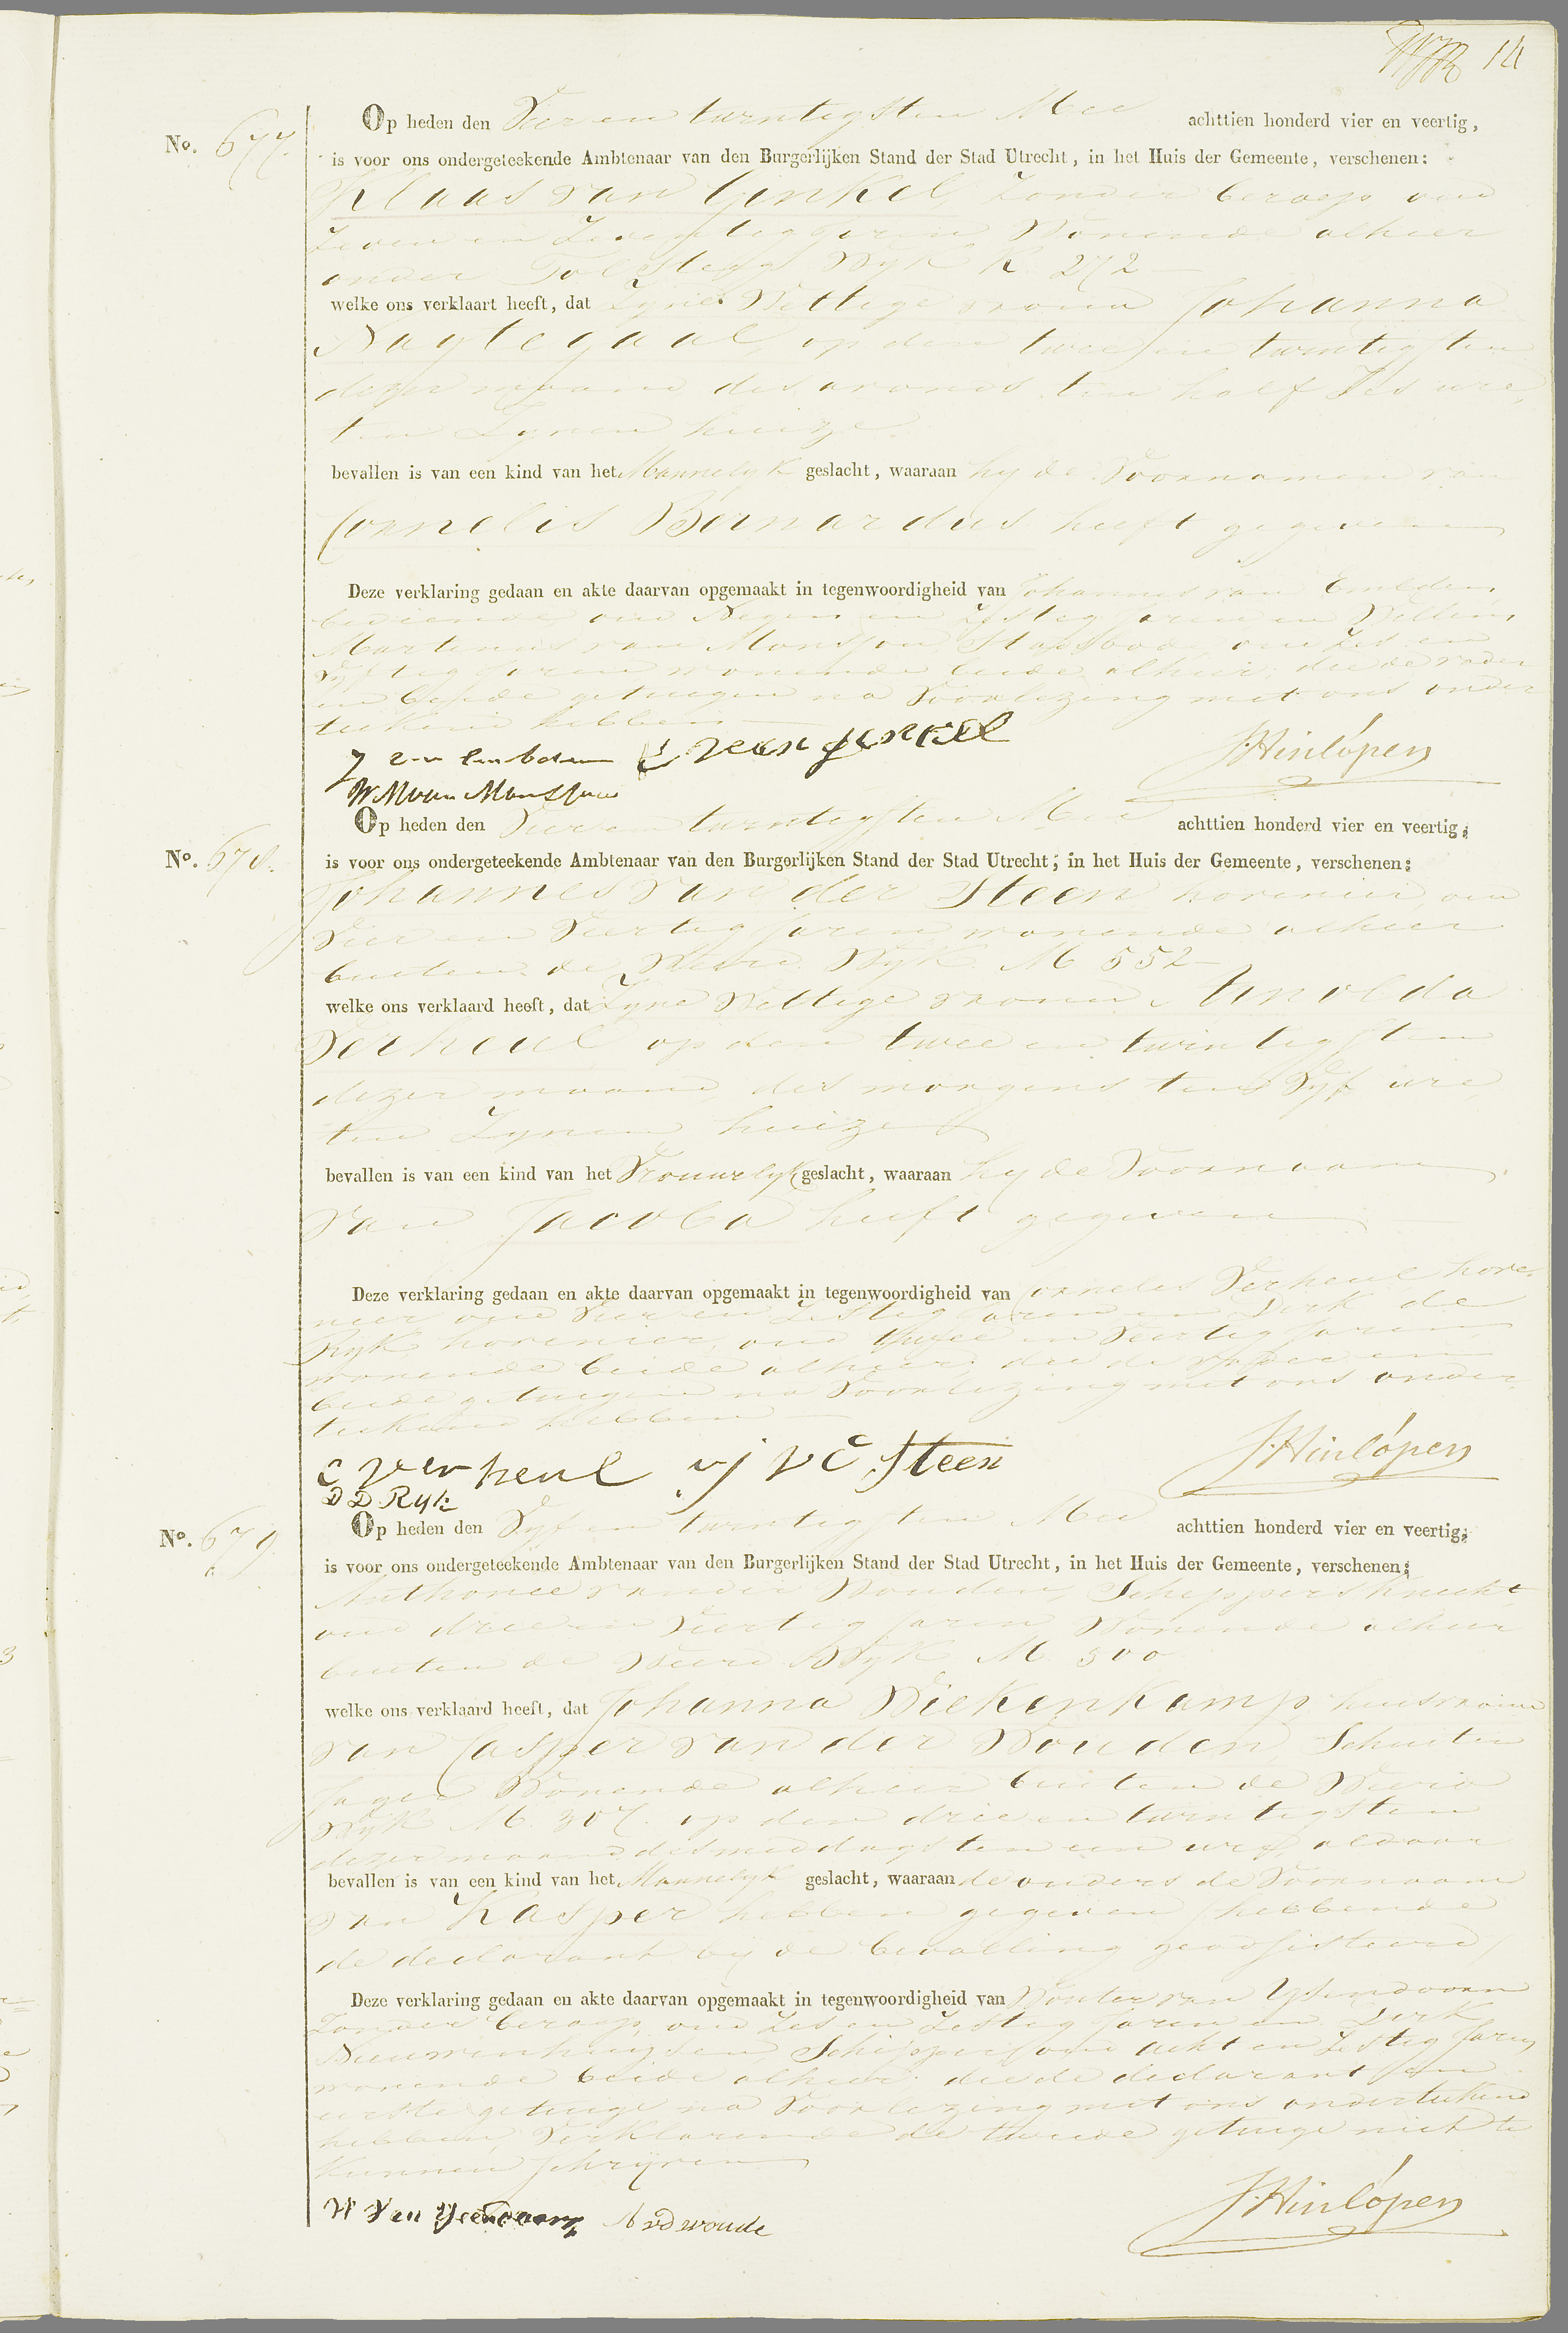 14
No. 677.
Op heden den Vier en twintigsten Mei achttien honderd vier en veertig,
is voor ons ondergeteekende Ambtenaar van den Burgerlijken Stand der Stad Utrecht, in het Huis der Gemeente, verschenen:
Klaas van Ginkel, Zonder beroep oud
Zeven en Zeventig jaren Wonende alhier
onder Tolsteeg Wyk K 272
welke ons verklaart heeft, dat Zyne Wettige vrouw Johanna
Nagtegaal op den twee en twintigsten
dezer maand des avonds ten half Zes ure,
ten Zynen huize
bevallen is van een kind van het Mannelyk geslacht, waaraan hy de Voornamen van
Cornelis Bernardus heeft gegeven
Deze verklaring gedaan en akte daarvan opgemaakt in tegenwoordigheid van Johannes van Embden
bediende oud Negen en Zestig jaren en Willem
Martinus van Mansjou Stadsbode oud Zes en
Vyftig jaren wonende beide alhier, die de vader
en beide getuigen na Voorlezing met ons onder
teekend hebben
J van Embden K van Ginkel J. Hinlópen
W M van Mansjou
No. 678.
Op heden den Vier en twintigsten Mei achttien honderd vier en veertig,
is voor ons ondergeteekende Ambtenaar van den Burgerlijken Stand der Stad Utrecht, in het Huis der Gemeente, verschenen:
Johannes van der Steen hovenier, oud
Vier en Veertig jaren wonende alhier
buiten de Weerd Wyk M 552
welke ons verklaard heeft, dat Zyne Wettige vrouw Arnolda
Verheul op den twee en twintigsten
dezer maand des morgens ten Vyf ure,
ten Zynen huize
bevallen is van een kind van het Vrouwelyk geslacht, waaraan hy de Voornaam
van Jacoba heeft gegeven
Deze verklaring gedaan en akte daarvan opgemaakt in tegenwoordigheid van Cornelis Verheul hove-
nier oud Vier en Zestig jaren en Dirk de
Ryk hovenier, oud twee en Veertig jaren
wonende beide alhier, die de vader en
beide getuigen na Voorlezing met ons onder-
teekend hebben
C Verheul J V D Steen J. Hinlópen
D D Ryk
No. 679
Op heden den Vyf en twintigsten Mei achttien honderd vier en veertig,
is voor ons ondergeteekende Ambtenaar van den Burgerlijken Stand der Stad Utrecht, in het Huis der Gemeente, verschenen:
Anthonie van der Wouden, Schippersknecht,
oud drie en Veertig jaren Wonende alhier
buiten de Weerd Wyk M 300
welke ons verklaard heeft, dat Johanna Diekenkamp huisvrouw
van Casper van der Wouden, Schuiten
jager Wonende alhier buiten de Weerd
Wyk M. 307. op den drie en twintigsten
dezer maand des middags ten een ure, aldaar
bevallen is van een kind van het Mannelyk geslacht, waaraan de ouders de Voornaam
van Kasper hebben gegeven (hebbende
de declarant bij de bevalling geadsisteerd)
Deze verklaring gedaan en akte daarvan opgemaakt in tegenwoordigheid van Wouter van Ysendoorn
Zonder beroep, oud Zes en Zestig jaren en Dirk
Nieuwenhuyzen, Schipper oud acht en Zestig jaren
wonende beide alhier, die de declarant en
eerste getuige na Voorlezing met ons onderteekend
hebben, Verklarende de tweede getuige niet te
kunnen schrijven
W Van Ysendoorn A vd woude J. Hinlópen